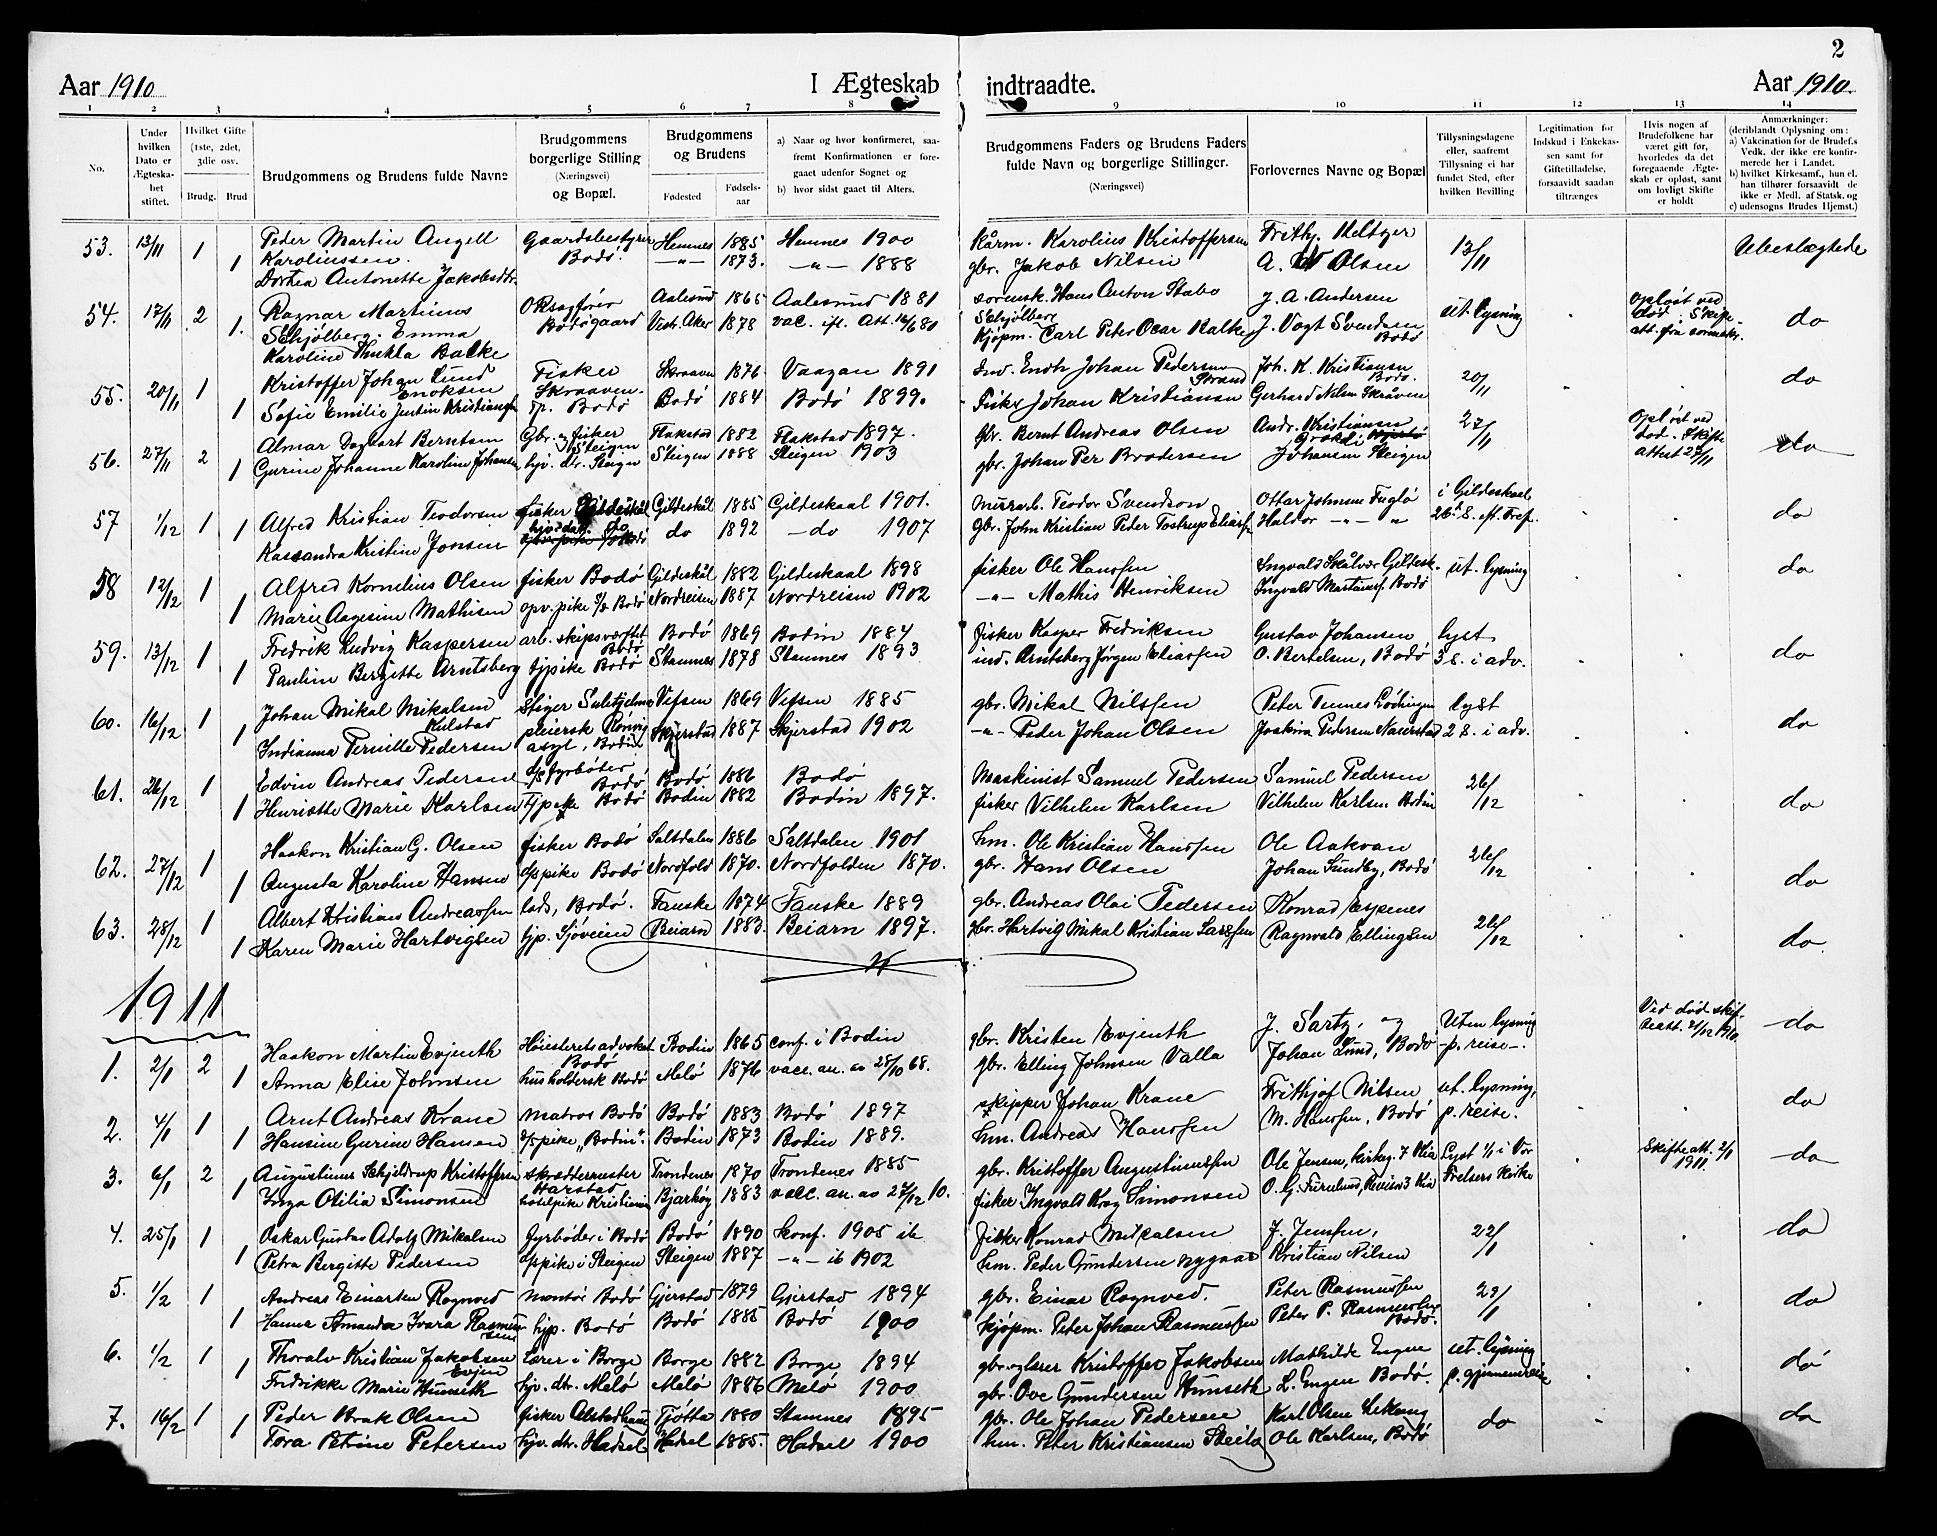 2
Aar 1910
I Ægteskab indtraadte.
Aar 1910.
1 2 3 4 5 6 7 8 9 10 11 12 13 14
No.
Under hvilken Dato er Ægteskabet stiftet.
Hvilket Gifte (1ste, 2det, 3die osv.
Brudg. Brud
Brudgommens og Brudens fulde Navne
Brudgommens borgerlige Stilling (Næringsvei) og Bopæl.
Brudgommens og Brudens
Fødested
Fødselsaar
a) Naar og hvor konfirmeret, saafremt Konfirmationen er foregaaet udenfor Sognet og
b) hvor sidst gaaet til Alters.
Brudgommens Faders og Brudens Faders fulde Navn og borgerlige Stillinger.
(Næringsvei)
Forlovernes Navne og Bopæl
Tillysningsdagene eller, saafremt Tillysning ei har fundet Sted, efter hvilken Bevilling
Legitimation for Indskud i Enkekassen samt for Giftetilladelse, forsaavidt saadan tiltrænges
Hvis nogen af Brudefolkene har været gift før, hvorledes da det foregaaende Ægteskab er opløst, samt om lovligt Skifte er holdt
Anmærkninger: (deriblandt Oplysning om:
a) Vakcination for de Brudef.s Vedk. der ikke ere konfirmerede her i Landet.
b) hvilket Kirkesamf., hun el. han tilhører forsaavidt de ikke er Medl. af Statsk. og
c) udensogns Brudes Hjemst.)
53. 13/11 1 Peder Martin Angell Karolinssen. Gaardsbestyrer Bodø. Hemnes 1885 Hemnes 1900 Kårm. Karolius Kristoffersen Frithj. Meltzer 13/11 Ubeslægtede
1 Dortea Antonette Jakobsdtr. —"— 1873. —"— 1888 gbr. Jakob Nilsen A. Olsen
54. 17/11 2 Ragnar Martinus Schjølberg. O.R.sagfører Bodøgaard Aalesund 1865 Aalesund 1881 sorensk. Hans Anton Stabo Schjølberg J. A. Andersen ut. lysning opløst ved død. Skifte att. fra sorensk. do
1. Emma Karoline Thukla Balke Vest. Aker 1878 vac. ifl. Att. Kjøpm. Carl Peter Oscar Balke J. Vogt Svendsen Bodø
55. 20/11 1 Kristoffer Johan Lund Enoksen Fisker Skraaven. Skraaven 1876 Vaagan 1891 Ind. Enok Johan Pedersen Strand Joh. K. Kristiansen Bodø. 20/11 do
1 Sofie Emilie Justin Kristiansen tp. Bodø Bodø 1884 Bodø 1899. Fisker Johan Kristiansen Gerhard Nilsen Skråven
56. 27/11 2 Almar Dagbart Berntsen Gbr. og fisker Steigen Flakstad 1882 Flakstad 1897. Gbr. Bernt Andreas Olsen Andr. Kristiansen 27/11 Opløst ved død. Skifte attest 27/11 do
1 Gurine Johanne Karolin Johansen hjv. dtr. Steigen Steigen 1888 Steigen 1903 gbr. Johan Per Brodersen Johansen Steigen
57 1/12 1 Alfred Kristian Teodorsen fisker Gildeskål Gildeskål 1885 Gildeskaal 1901. murarb. Teodor Svendsen Ottar Johnsen Fuglø i Gildeskaal, do
1 Kassandra Kristine Jonsen do 1892 —do 1907 gbr. John Kristian Peder Tostrup Eliasf. Haldor —"— "
58 12/12 1 Alfred Kornelius Olsen fisker Bodø Gildeskål 1882 Gildeskaal 1898 fisker Ole Hanssen Ingvald Skålvær Gildesk. ut. lysning do
1 Marie Aagesine Mathisen opv. pike Bodø Nordreisen 1887 Nordreisen 1902 —"— Mathis Henriksen Ingvald Martinus. Bodø
59. 13/12 1 Fredrik Ludvig Kaspersen arb. skipsværftet Bodø Bodø 1869 Bodin 1884 fisker Kasper Fredriksen Gustav Johansen lyst do
1 Pauline Bergitte Arntsberg tjpike Bodø Stamnes 1878 Stamnes 1893 ind. Arntsberg Jørgen Eliassen O. Bertelsen, Bodø 3 s. i adv.
60. 16/12 1 Johan Mikal Mikalsen Kulstad Stiger Sulitjelma Vefsen 1869 Vefsen 1885 gbr. Mikal Nilssen Peter Tennes Lødingen lyst do
1 Indianna Pernille Pedersen pleiersk Rønvig asyl, Bodin Skjerstad 1887 Skjerstad 1902 —"— Peder Johan Olsen Joakim Pedersen Naserstad 2 s. i adv.
61. 26/12 1 Edvin Andreas Pedersen d/s fyrbøter, Bodø Bodø 1886 Bodø Maskinist Samuel Pedersen Samuel Pedersen 26/12 do
1 Henriette Marie Karlsen Tjpike Bodø Bodin 1882 Bodin 1897. fisker Vilhelm Karlsen Vilhelm Karlsen Bodin
62. 27/12 1 Haakon Kristian G. Olsen fisker Bodø Saltdalen 1886 Saltdalen 1901 hm. Ole Kristian Hanssen Ole Aakvan 26/12 do
1 Augusta Karoline Hansen tjpike Bodø Nordfold 1870. Nordfolden 1870. gbr. Hans Olsen Johan Sundby, Bodø
63. 28/12 1 Albert Kristians Andreassen lods, Bodø. Fauske 1874 Fauske 1889 gbr. Andreas Olai Pedersen Konrad Espenes 26/12 do.
1 Karen Marie Hartvigsen tjp. Sjøveien Beiarn 1883. Beiarn 1897. gbr. Hartvig Mikal Kristian Larssen Ragnvald Ellingsen
1911
1. 2/1 2 Haakon Martin Evjenth Høiesteretsadvokat Bodø Bodin 1865 conf. i Bodin gbr. Kristen Evjenth J. Sartz, og Uten lysning Ved død skifteatt. 31/12 1910. do
1 Anna Elise Johnsen husholdersk Bodø Melø 1876 vacc. an. av 28/10 68. gbr. Elling Johnsen Valla Johan Lund, Bodø —p. reise—.
2. 4/1 1 Arnt Andreas Krane matros Bodø Bodø 1883 Bodø 1897 skipper Johan Krane Frithjof Nilsen ut. lysning, do
1 Hansine Gurine Hansen d/spike "Bodin". Bodin 1873 Bodin 1889. hm. Andreas Hanssen M. Hanssen, Bodø p. reise.
3. 6/1 2 Augustinus Schjeldrup Kristoffersen skræddermester Harstad Trondenes 1870 Trondenes 1885 gbr. Kristoffer Augustinussen Ole Jensen, Kirkeg. 7 Kia Lyst 1/1 i Vor Skifteatt. 2/1 1911. do
1 Inga Otilia Simonsen hotelpike Kristiania Bjarkøy 1883 vacc. an. av 27/12 10. fisker Ingvald Krog Simonsen O. G. Furulund, Revier 3 Kia Frelsers Kirke
4. 25/1 1 Oskar Gustav Adolf Mikalsen fyrbøder i Bodø Bodø 1890 konf. 1905 ib fisker Konrad Mikalsen J. Jenssen, 22/1 do
1 Petra Bergitte Pedersen tjpike i Steigen Steigen 1887 —"— ib 1902 hm. Peder Gundersen Nygaard Kristian Nilsen
5. 1/2 1 Andreas Einarsen Rognved montør Bodø Gjerstad 1879 Gjerstad 1894 gbr. Einar Rognved. Peter Rasmussen 29/1 do
1 Hanna Amanda Ivara Rasmussen hjp. Bodø Bodø 1885 Bodø 1900 kjøpm. Peter Johan Rasmussen Peter P. Rasmussen Bodø.
6. 1/2 1 Thoralv Kristian Jakobsen Evjen Lærer i Borge Borge 1882 Borge 1894 gbr. og lærer Kristoffer Jakobsen Mathilde Engen ut. lysning do
1 Fredrikke Marie Hunseth hjv. dtr. Melø Melø 1886 Melø 1900 gbr. Ove Gundersen Hunseth L. Engen Bodø. p. gjennemreise
7. 16/2 1 Peder Brak Olsen fisker Alstadhaug Tjøtta 1880 Stamnes 1895 gbr. Ole Johan Pedersen Karl Olsen Lekang do do
1 Tora Petrine Petersen hjv. dtr. Hadsel Hadsel 1885. Hadsel 1900 hm. Peter Kristiansen Skeilo Ole Karlsen, Bodø